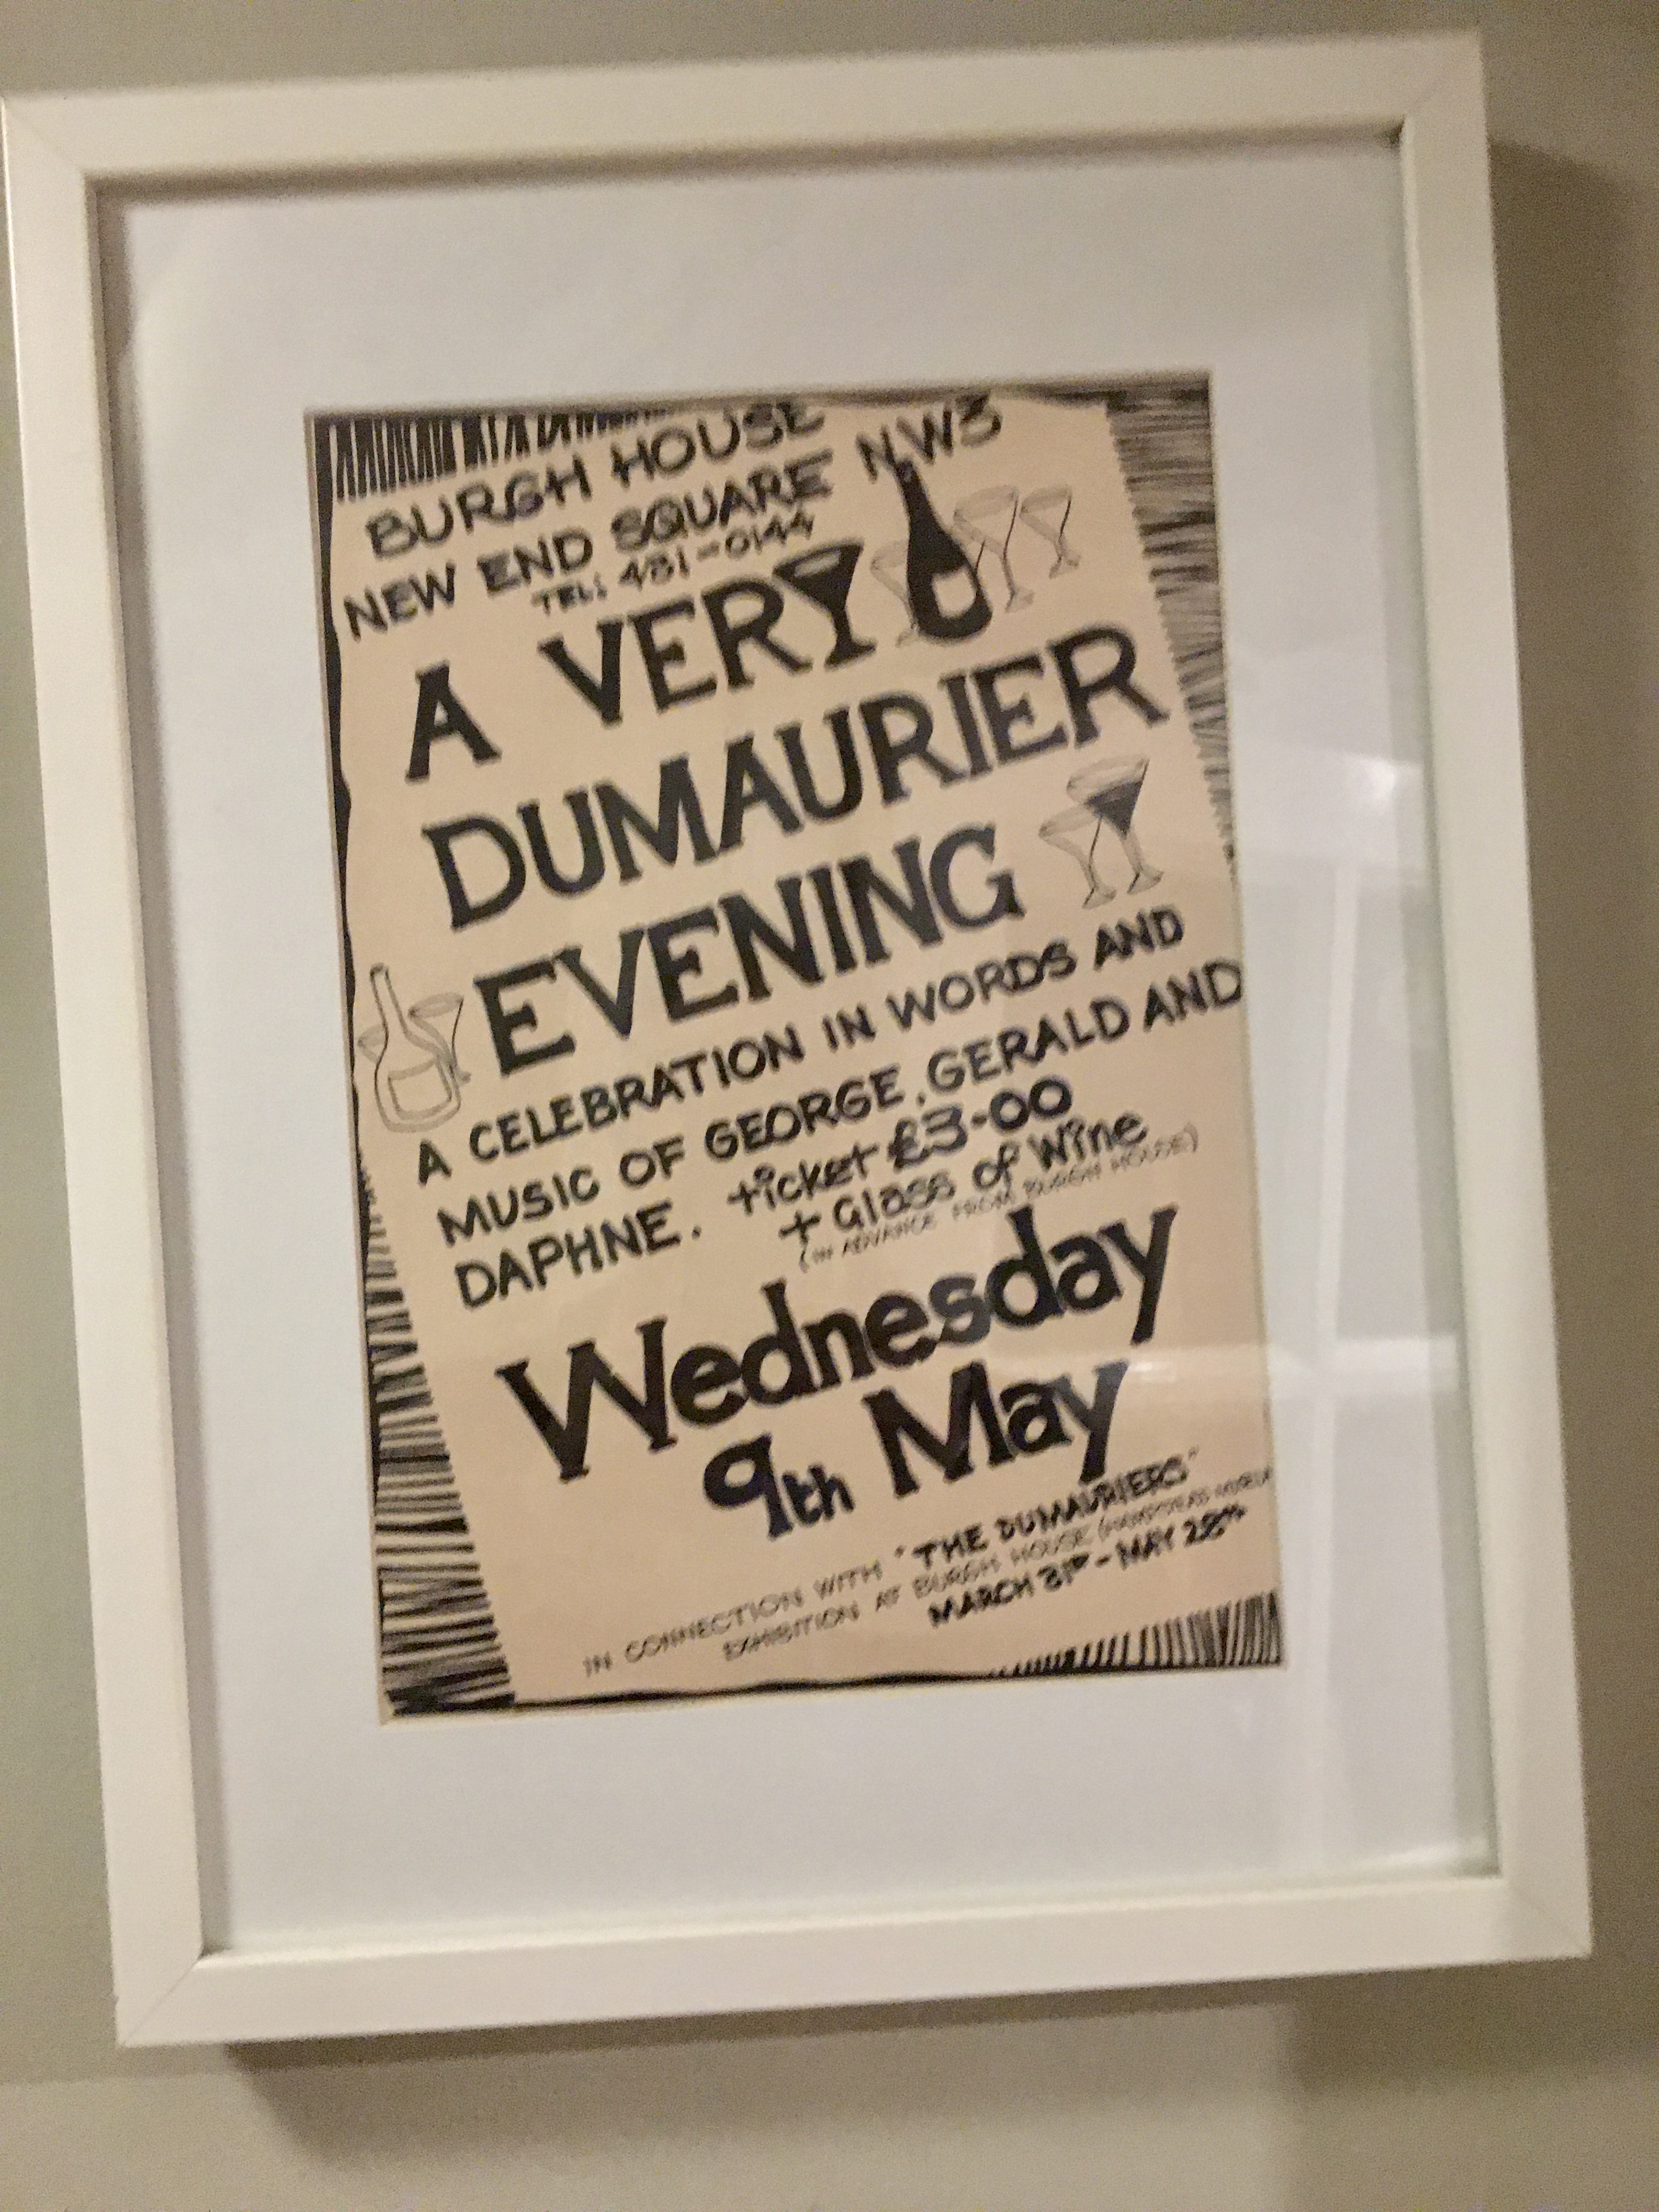 BURGH HOUSE
NEW END SQUARE NW3
TEL: 431-0144
A VERY
DUMAURIER
EVENING
A CELEBRATION IN WORDS AND
MUSIC OF GEORGE, GERALD AND
DAPHNE. ticket £3-00
+ Glass of Wine
(IN ADVANCE FROM BURGH HOUSE)
Wednesday
9th May
IN CONNECTION WITH "THE DUMAURIERS"
EXHIBITION AT BURGH HOUSE (HAMPSTEAD
MARCH 31st - MAY 28th